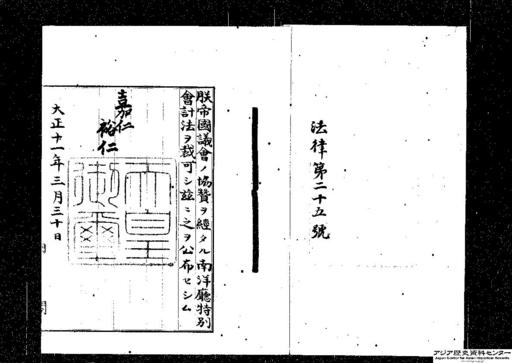 法律第二十五號
朕帝國議會ノ協贊ヲ經タル南洋廳特別
會計法ヲ裁可シ茲ニ之ヲ公布セシム
嘉仁
裕仁
天皇
御璽
大正十一年三月三十日
アジア歴史資料センター
Japan Center for Asian Historical Records